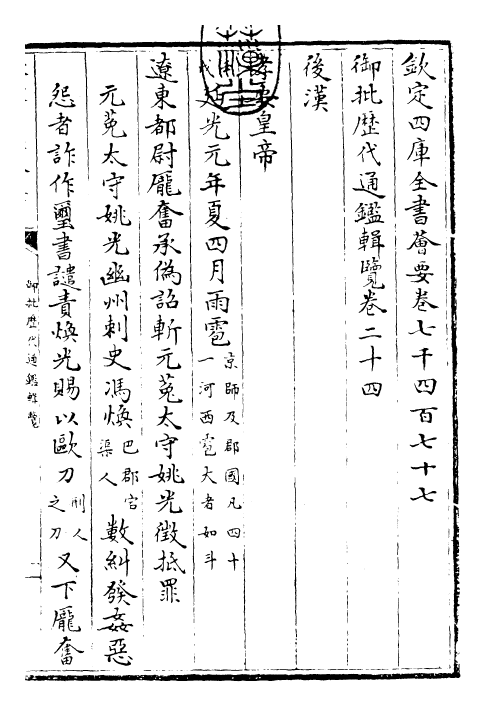 欽定四庫全書薈要卷七千四百七十七
御批歷代通鑑輯覽卷二十四
後漢
孝安皇帝
延光元年夏四月雨雹京師及郡國凡四十一河西雹大者如斗
遼東都尉龐奮承偽詔斬元菟太守姚光徵抵罪
元菟太守姚光幽州刺史馮煥巴郡宕渠人數糾發姦惡
怨者詐作璽書譴責煥光賜以歐刀刑人之刀又下龐奮
御批歷代通鑑輯覽